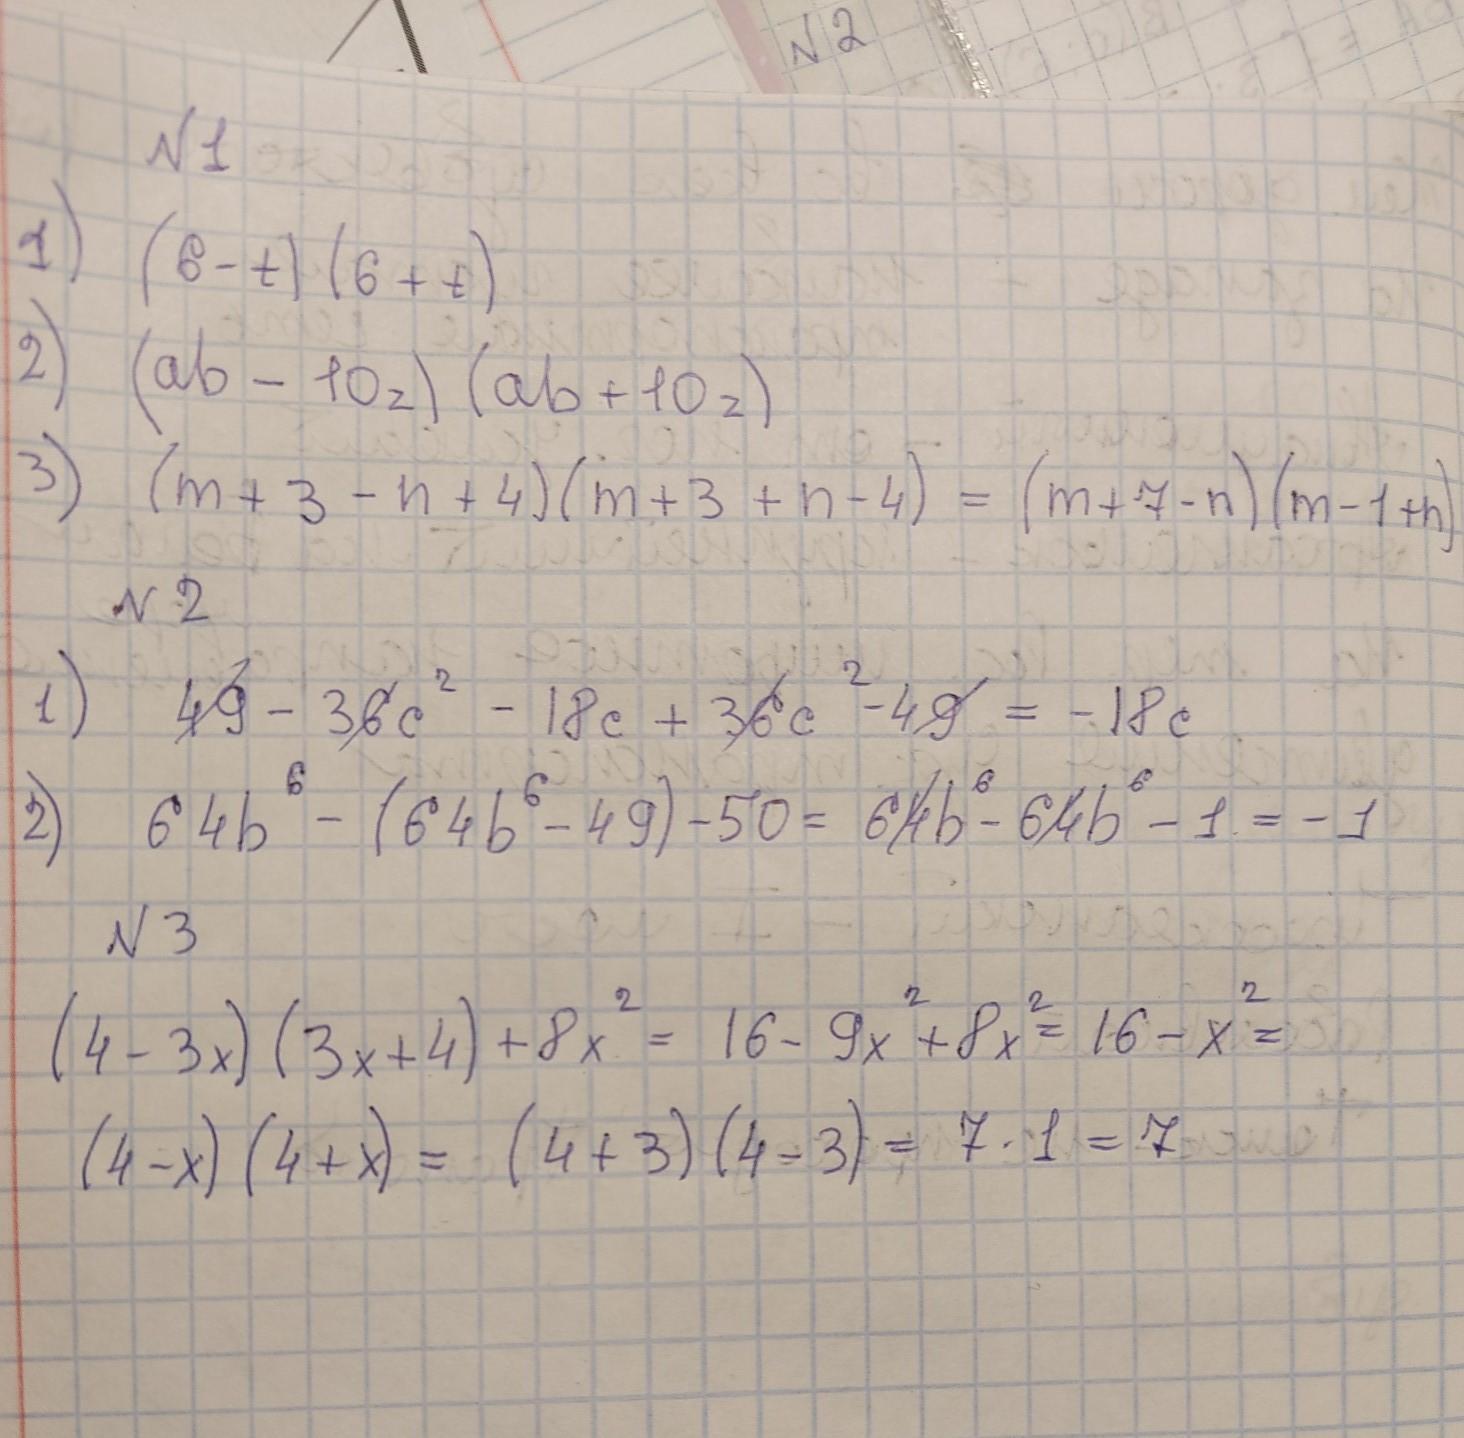 N 2
N 1
1) (6 - t) (6 + t)
2) (ab - 10z) (ab + 10z)
3) (m + 3 - n + 4) (m + 3 + n - 4) = (m + 7 - n) (m - 1 + n)
N 2
1) 49 - 36c² - 18c + 36c² - 49 = - 18c
2) 64b⁶ - (64b⁶ - 49) - 50 = 64b⁶ - 64b⁶ - 1 = - 1
N 3
(4 - 3x) (3x + 4) + 8x² = 16 - 9x² + 8x² = 16 - x² =
(4 - x) (4 + x) = (4 + 3) (4 - 3) = 7 · 1 = 7